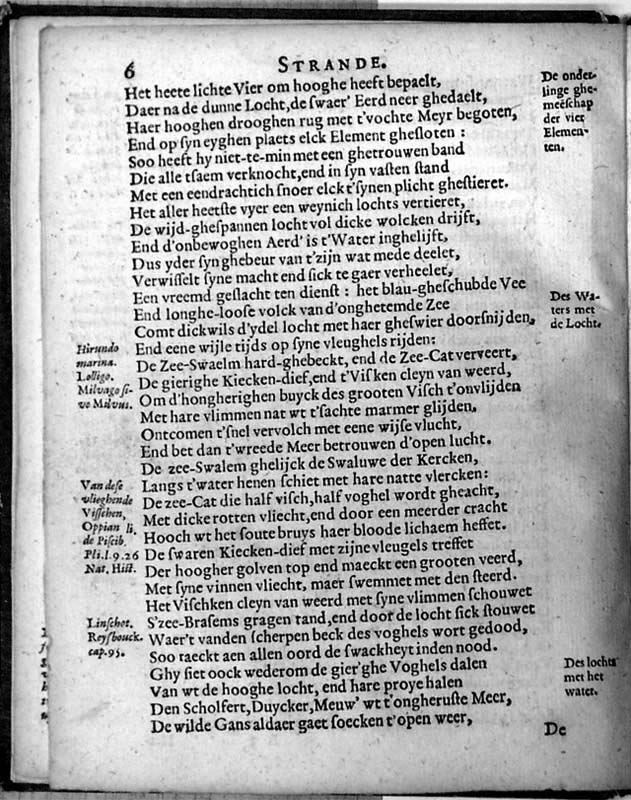 6 STRANDE.
Het heete lichte Vier om hooghe heeft bepaelt,
Daer na de dunne Locht, de swaer' Eerd neer ghedaelt,
Haer hooghen drooghen rug met t'vochte Meyr begoten,
End op syn eyghen plaets elck Element ghesloten:
Soo heeft hy niet-te-min met een ghetrouwen band
Die alle tsaem verknocht, end in syn vasten stand
Met een eendrachtich snoer elck t'synen plicht ghestieret.
Het aller heetste vyer een weynich lochts vertieret,
De wijd-ghespannen locht vol dicke wolcken drijft,
End d'onbewoghen Aerd' is t'Water inghelijft,
Dus yder syn ghebeur van t'zijn wat mede deelet,
Verwisselt syne macht end sick te gaer verheelet,
Een vreemd geslacht ten dienst: het blau-gheschubde Vee
End longhe-loose volck van d'onghetemde Zee
Comt dickwils d'ydel locht met haer gheswier doorsnijden,
End eene wijle tijds op syne vleughels rijden:
De Zee-Swaelm hard-ghebeckt, end de Zee-Cat verveert,
De gierighe Kiecken-dief, end t'Visken cleyn van weerd,
Om d'hongherighen buyck des grooten Visch t'onvlijden
Met hare vlimmen nat wt t'sachte marmer glijden,
Ontcomen t'snel vervolch met eene wijse vlucht,
End bet dan t'wreede Meer betrouwen d'open lucht.
De zee-Swalem ghelijck de Swaluwe der Kercken,
Langs t'water henen schiet met hare natte vlercken:
De zee-Cat die half visch, half voghel wordt gheacht,
Met dicke rotten vliecht, end door een meerder cracht
Hooch wt het soute bruys haer bloode lichaem heffet.
De swaren Kiecken-dief met zijne vleugels treffet
Der hoogher golven top end maeckt een grooten veerd,
Met syne vinnen vliecht, maer swemmet met den steerd.
Het Vischken cleyn van weerd met syne vlimmen schouwet
S'zee-Brasems gragen tand, end door de locht sick stouwet
Waer't vanden scherpen beck des voghels wort gedood,
Soo raeckt aen allen oord de swackheyt inden nood.
Ghy siet oock wederom de gier'ghe Voghels dalen
Van wt de hooghe locht, end hare proye halen
Den Scholfert, Duycker, Meuw' wt t'ongheruste Meer,
De wilde Gans aldaer gaet soecken t'open weer,
De
De onder-
linge ghe-
meëschap
der vier
Elemen-
ten.
Des Wa-
ters met
de Locht.
Hirundo
marina.
Lolligo.
Milvago si-
ve Milvus.
Van dese
vlieghende
Visschen,
Oppian li.
de Piscib.
Pli.l.9.26
Nat. Hist.
Linschot.
Reysbouck.
cap.95.
Des lochts
met het
water.